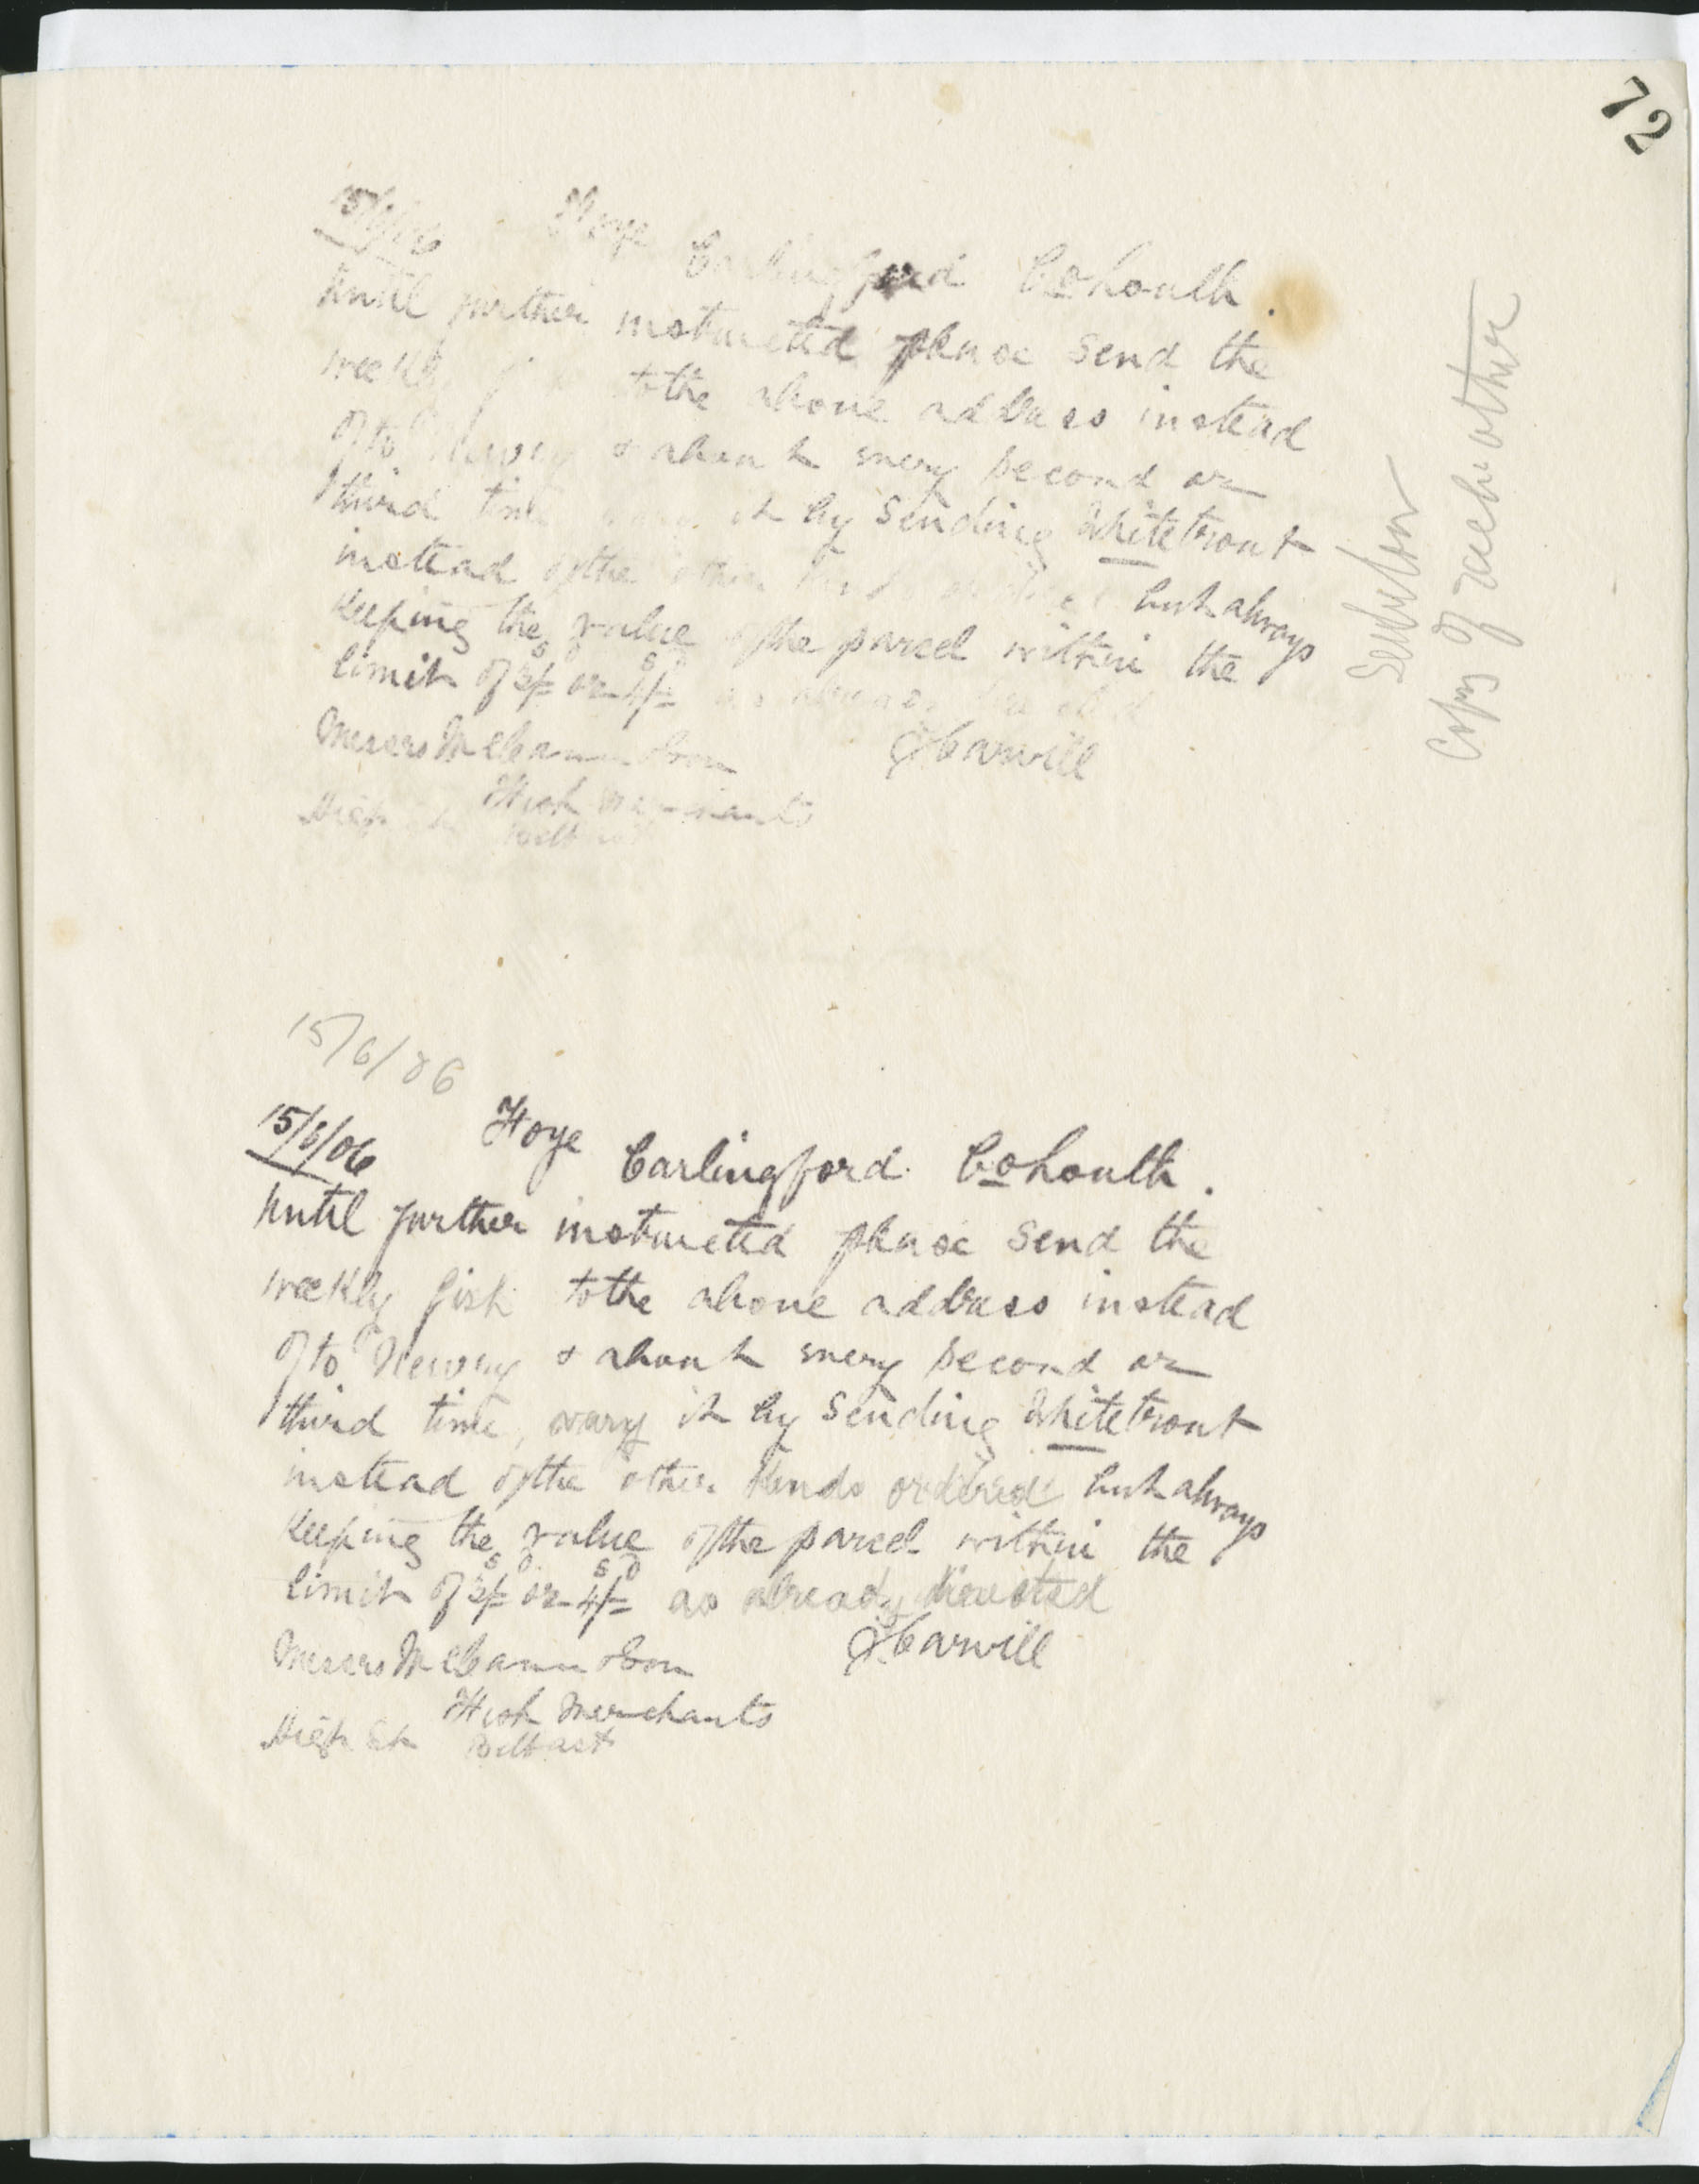 72
15/6/06 Foye
Carlingford Co Louth.
Until further instructed please send the
weekly to the above address instead
of to Newry & about every second or
third time it by sending White trout
instead of the other but always
keeping the value of the parcel within the
limit of 3/= or 4/=
S D S D
Messrs McCann & Son JCarvill
Fish Merchants
High St Belfast
See below
Copy of each other
15/6/06
15/6/06 Foye
Carlingford. Co Louth.
Until further instructed please send the
weekly fish to the above address instead
of to Newry & about every second or
third time, vary it by sending White trout
instead of the other kinds ordered but always
keeping the value of the parcel within the
S D S D
limit of 3/= or 4/= as already directed
JCarvill
Messrs McCann & Son
Fish Merchants
High St Belfast